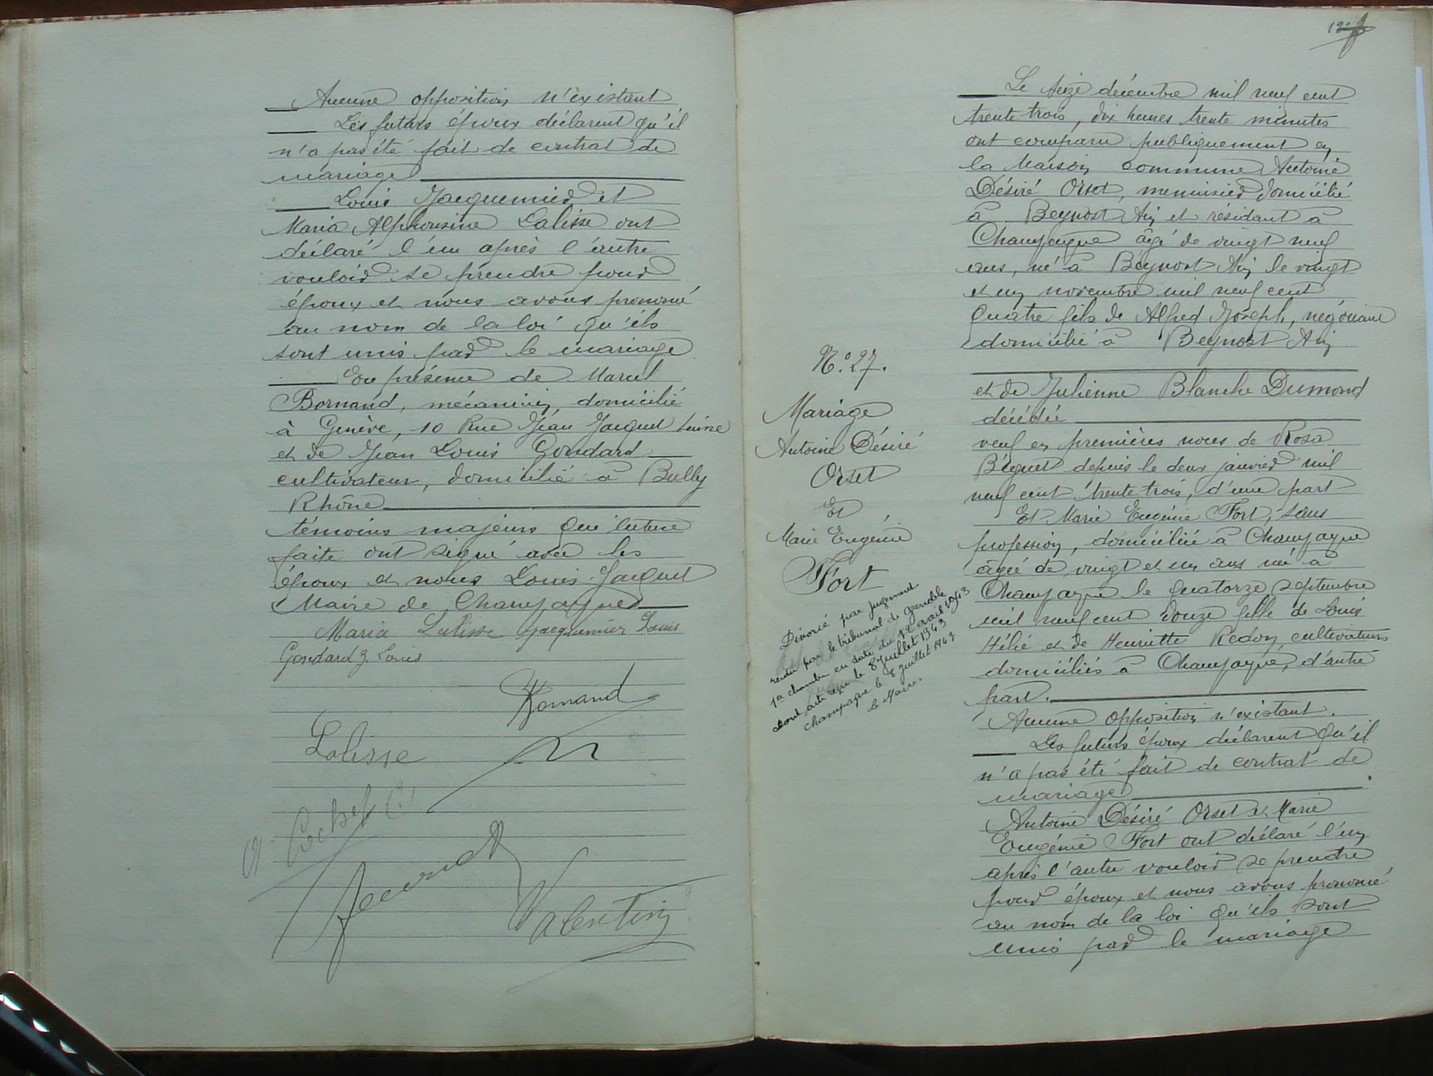 Aucune opposition n'existant
Les futurs époux déclarent qu'il
n'a pas été fait de contrat de
mariage
Louis Jacquemier et
Maria Alphonsine Lalisse ont
déclaré l'un après l'autre
vouloir se prendre pour
époux et nous avons prononcé
au nom de la loi qu'ils
sont unis par le mariage
En présence de Marcel
Bornand, mécanicien, domicilié
à Genève, 10 Rue Jean Jacquet Suisse
et de Jean Louis Gondard
cultivateur, domicilié à Bully
Rhône
témoins majeurs qui lecture
faite ont signé avec les
époux et nous Louis Jacquet
Maire de Champagne
Maria Lalisse Jacquemier Louis
Gondard J. Louis
Bornand
Lalisse
Valentin
Le seize décembre mil neuf cent
trente trois, dix heures trente minutes
ont comparu publiquement en
la Maison commune Antoine
Désiré Orset, menuisier domicilié
à Beynost Ain et résidant à
Champagne âgé de vingt neuf
ans, né à Beynost Ain le vingt
et un novembre mil neuf cent
quatre fils de Alfred Joseph, négociant
domicilié à Beynost Ain
et de Julienne Blanche Dumond
décédée
veuf en premières noces de Rosa
Béguet depuis le deux janvier mil
neuf cent trente trois, d'une part
Et Marie Eugénie Fort, sans
profession, domiciliée à Champagne
âgée de vingt et un ans né à
Champagne le quatorze septembre
mil neuf cent douze fille de Louis
Hélié et de Henriette Redon cultivateurs
domiciliés à Champagne, d'autre
part.
Aucune opposition n'existant.
Les futurs époux déclarent qu'il
n'a pas été fait de contrat de
mariage
Antoine Désiré Orset et Marie
Eugénie Fort ont déclaré l'un
après l'autre vouloir se prendre
pour époux et nous avons prononcé
au nom de la loi qu'ils sont
unis par le mariage
N.° 27.
Mariage
Antoine Désiré
Orset
Et
Marie Eugénie
Fort
Divorcé par jugement
rendu par le tribunal de Grenoble
1e chambre en date du 12 avril 1943
dont acte reçu le 8 juillet 1943
Champagne le 8 juillet 1943
le Maire.